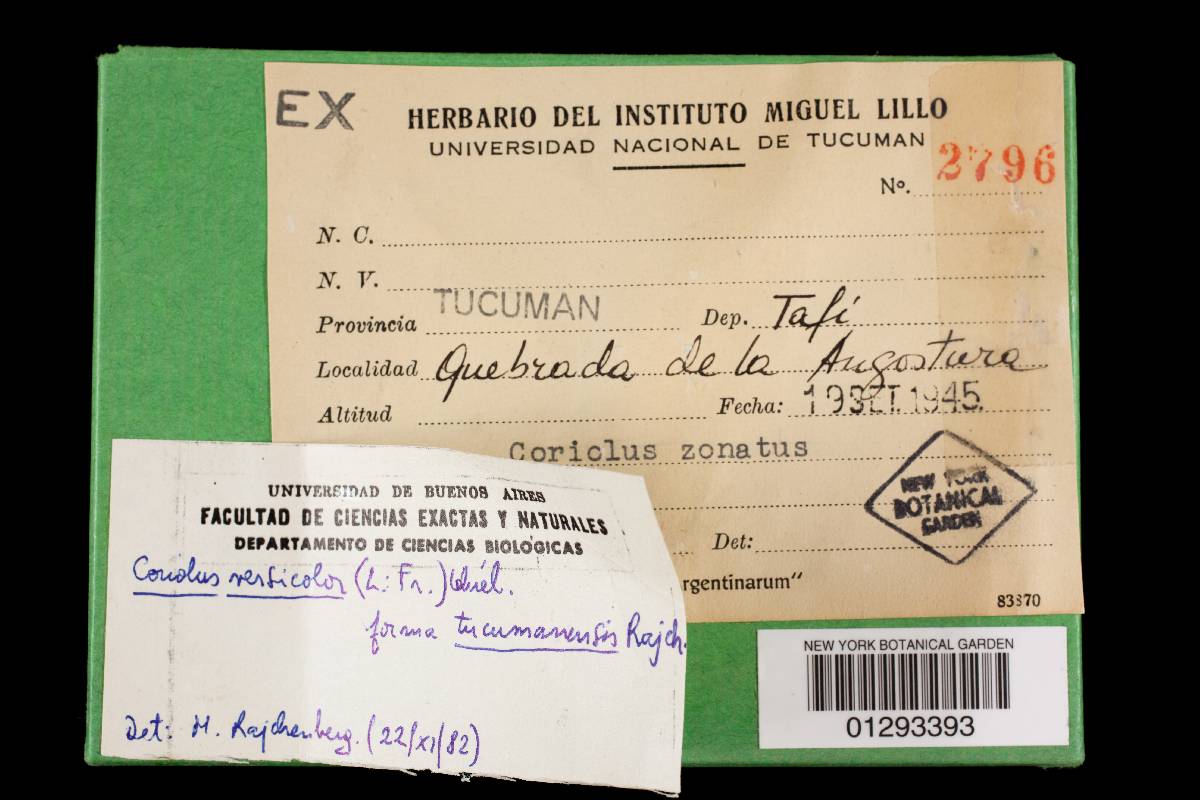 EX
HERBARIO DEL INSTITUTO MIGUEL LILLO
UNIVERSIDAD NACIONAL DE TUCUMAN
No. 2796
N. C.
N. V.
Provincia TUCUMAN Dep. Tafí
Localidad Quebrada de la Angostura
Altitud Fecha: 19 SET. 1945
Coriclus zonatus
NEW YORK
BOTANICAL
GARDEN
Det:
rgentinarum“
83870
UNIVERSIDAD DE BUENOS AIRES
FACULTAD DE CIENCIAS EXACTAS Y NATURALES
DEPARTAMENTO DE CIENCIAS BIOLOGICAS
Coriolus versicolor (L.: Fr.) Quél.
forma tucumanensis Rajch.
Det: M. Rajchenberg. (22/XI/82)
NEW YORK BOTANICAL GARDEN
01293393